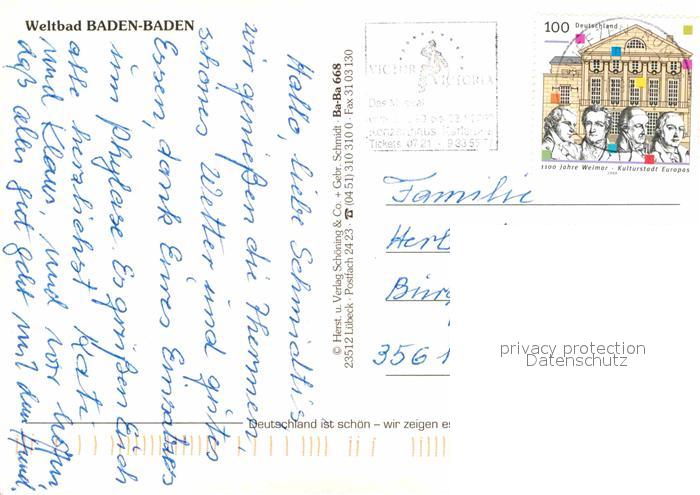 Weltbad BADEN-BADEN
Hallo, liebe Schmidti's
wir genießen die Thermen,
schönes Wetter und gutes
Essen, dank Eines Einsatzes
im Es grüßen Euch
alle herzlichst Kati
und Klaus, und wir hoffen,
daß alles gut geht mit dem Hund.
© Herst. u. Verlag Schöning & Co. + Gebr. Schmidt · Ba-Ba 668
23512 Lübeck · Postfach 24 23 · ☎ (04 51) 310 310 0 · Fax 31 03 130
VICTOR VICTORIA
Das Musical
Konzerthaus Karlsruhe
Tickets 07 21 -
100 Deutschland
1100 Jahre Weimar - Kulturstadt Europas
1999
Familie
Herb
Bürg
3561
privacy protection
Datenschutz
Deutschland ist schön – wir zeigen es